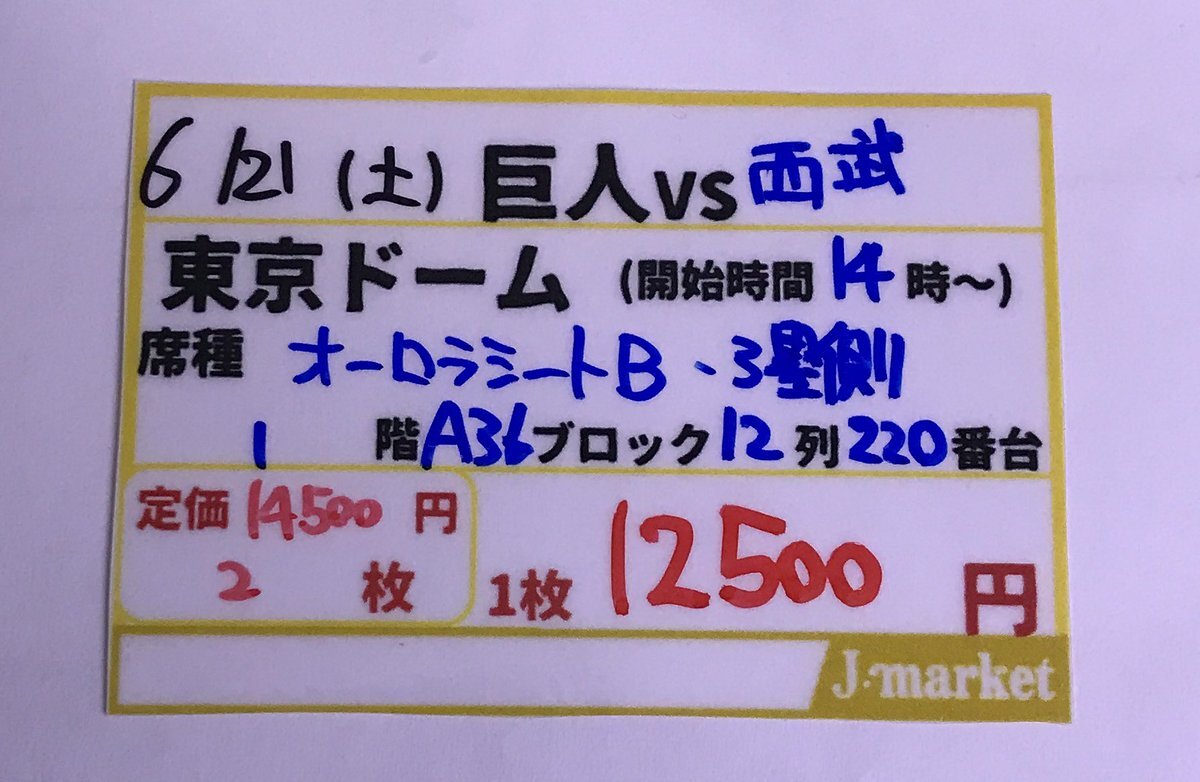 6/21(土)巨人vs西武
東京ドーム(開始時間14時〜)
席種 オーロラシートB・3塁側
1階A36ブロック12列220番台
定価14500円
2枚 1枚12500円
J·market